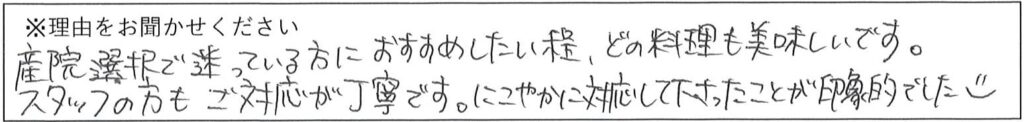 ※理由をお聞かせください
産院選択で迷っている方におすすめしたい程、どの料理も美味しいです。
スタッフの方もご対応が丁寧です。にこやかに対応して下さったことが印象的でした